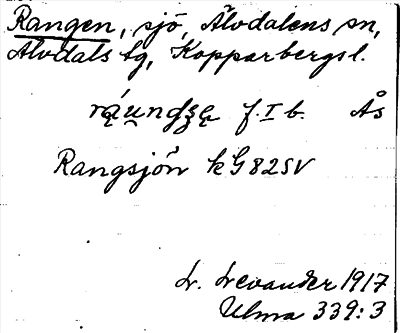 Rangen, sjö, Älvdalens sn,
Älvdals tg, Kopparbergs l.
f. I b. Ås
Rangsjön k G 82 SV
L. Levander 1917
Ulma 339:3